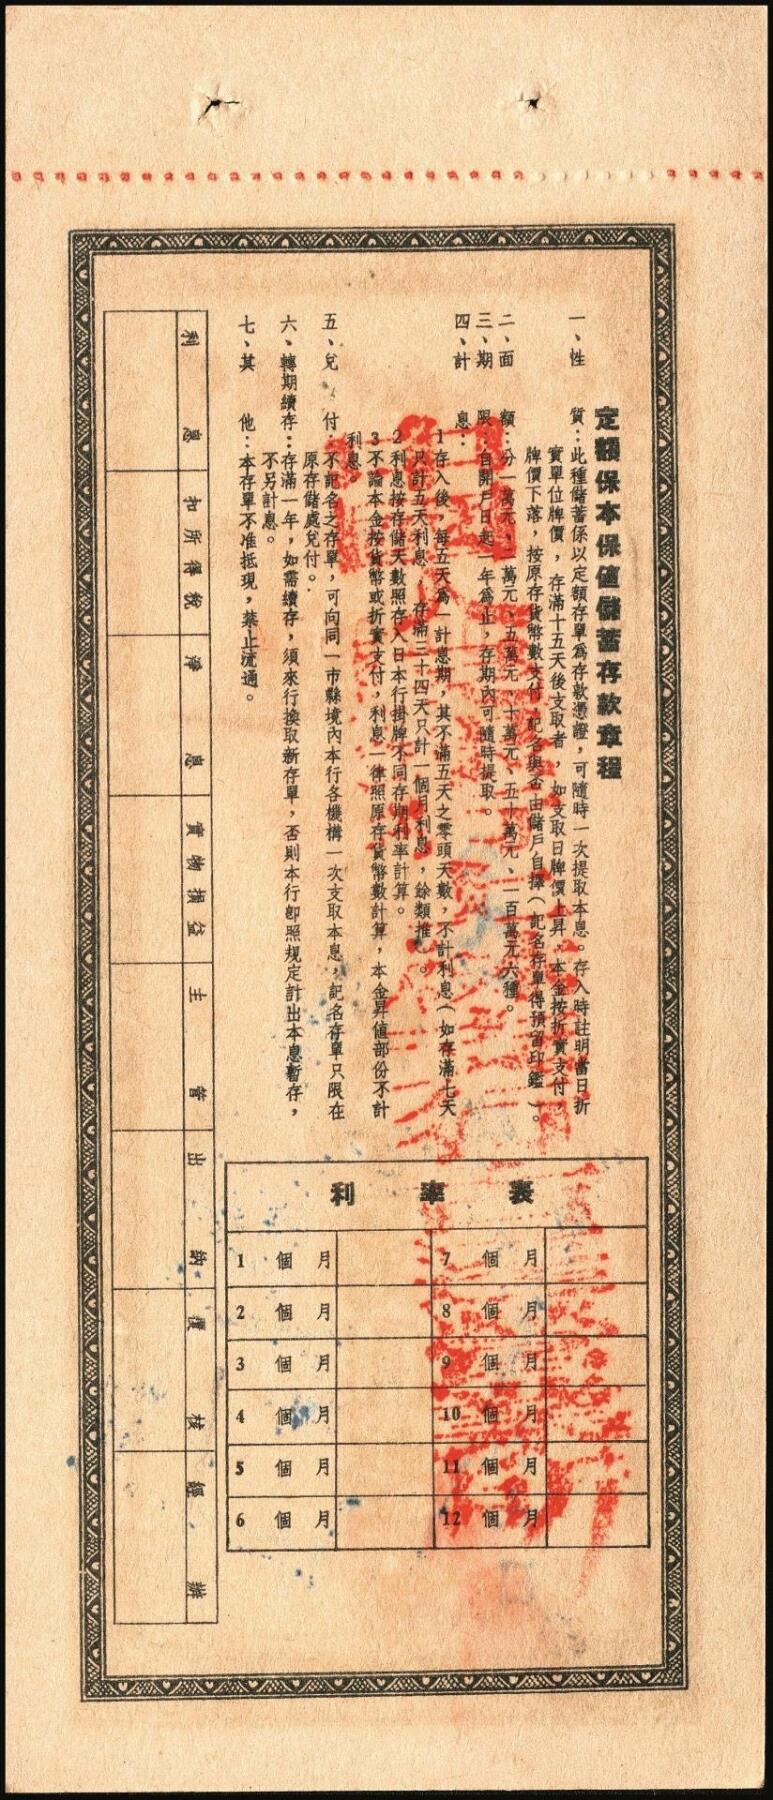 定額保本保值儲蓄存款章程
一、性　質：此種儲蓄係以定額存單為存款憑證，可隨時一次提取本息。存入時註明當日折
實單位牌價，存滿十五天後支取者，如支取日牌價上昇，本金按折實支付，
牌價下落，按原存貨幣數支付，記名與否由儲戶自擇（記名存單得預留印鑑）。
二、面　額：分一萬元、二萬元、五萬元、十萬元、五十萬元、一百萬元六種。
三、期　限：自開戶日起一年為止，存期內可隨時提取。
四、計　息：
1 存入後，每五天為一計息期，其不滿五天之零頭天數，不計利息（如存滿七天
只計五天利息，存滿三十四天只計一個月利息，餘類推）。
2 利息按存儲天數照存入日本行掛牌不同存期利率計算。
3 不論本金按貨幣或折實支付，利息一律照原存貨幣數計算，本金昇值部份不計
利息。
五、兌　付：不記名之存單，可向同一市縣境內本行各機構一次支取本息，記名存單只限在
原存儲處兌付。
六、轉期續存：存滿一年，如需續存，須來行換取新存單，否則本行卽照規定計出本息暫存，
不另計息。
七、其　他：本存單不准抵現，禁止流通。
利率表
1 個月
7 個月
2 個月
8 個月
3 個月
9 個月
4 個月
10 個月
5 個月
11 個月
6 個月
12 個月
利息
扣所得稅
淨息
實物損益
主管
出納
覆核
經辦